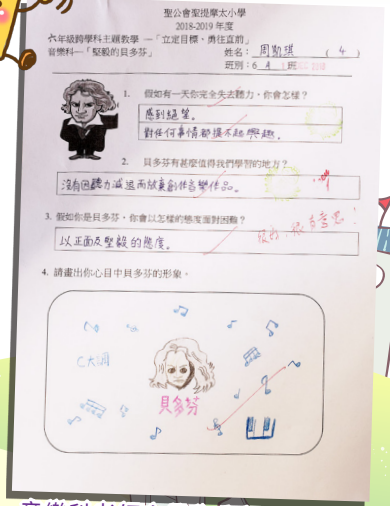 聖公會聖提摩太小學
2018-2019 年度
六年級跨學科主題教學 —「立定目標，勇往直前」
音樂科—「堅毅的貝多芬」 姓名： 周勤琪 ( 4 )
班別：6 A 班
1. 假如有一天你完全失去聽力，你會怎樣？
感到絕望。
對任何事情都提不起興趣。
2. 貝多芬有甚麼值得我們學習的地方？
沒有因聽力減退而放棄創作音樂作品。
3. 假如你是貝多芬，你會以怎樣的態度面對困難？
以正面及堅毅的態度。
4. 請畫出你心目中貝多芬的形象。
C大調
貝多芬